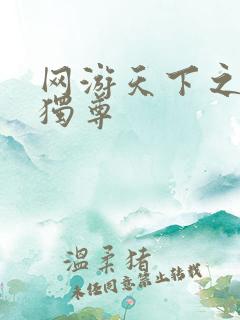 网游天下之
獨尊
温柔猪
未经同意禁止转载